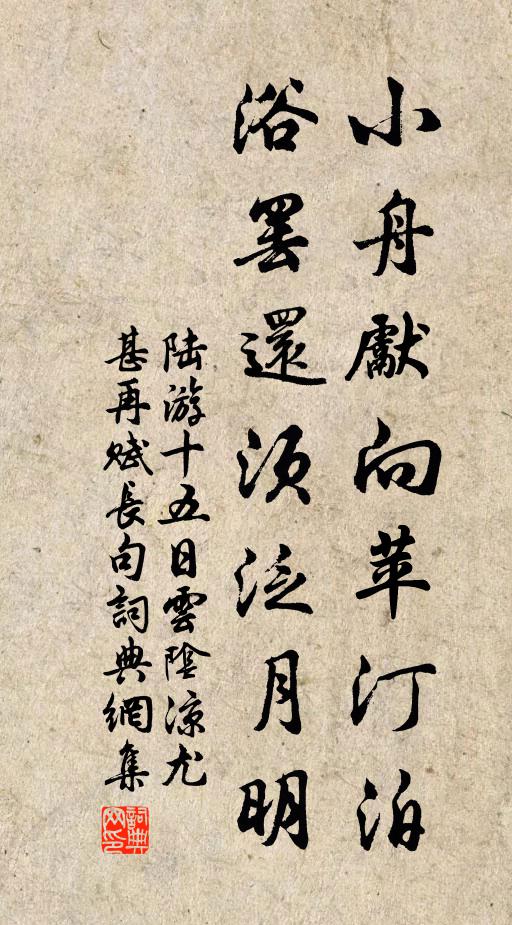 小舟獻向苹汀泊
浴罷還須泛月明
陆游十五日雲陰凉尤
甚再赋長句詞典網集
詞典网印